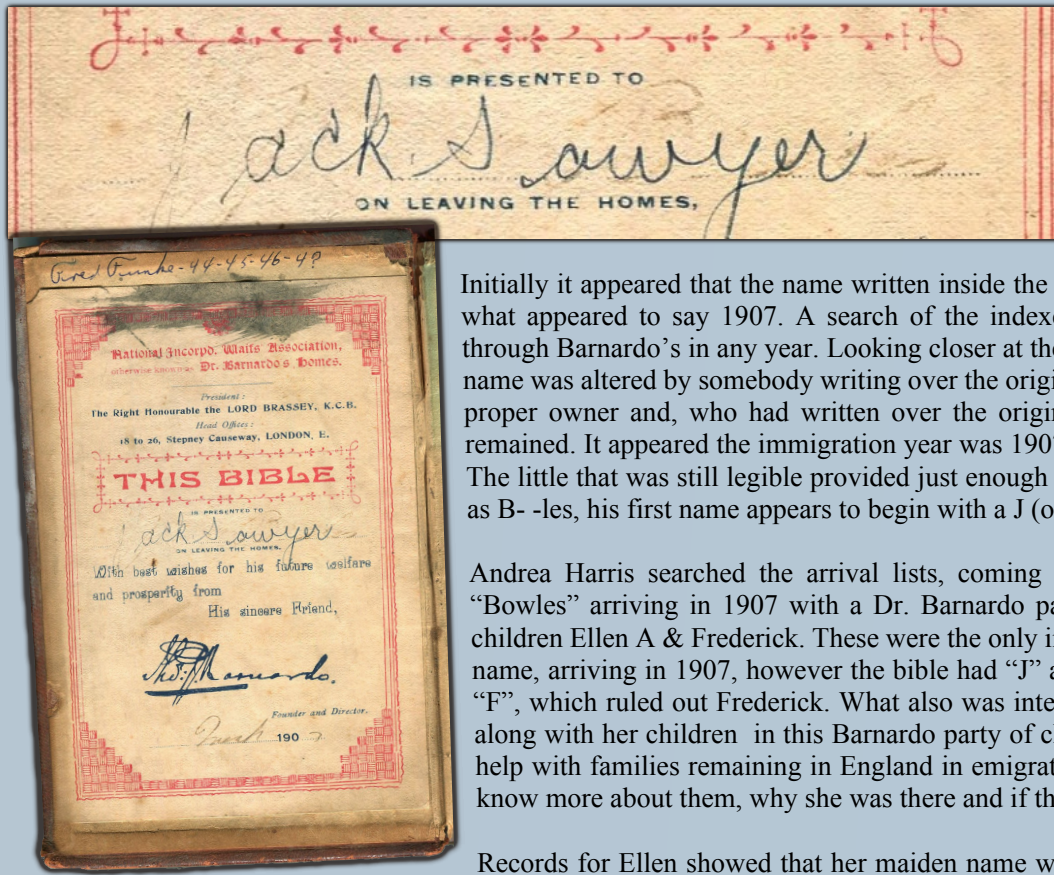 IS PRESENTED TO
Jack Sawyer
ON LEAVING THE HOMES,
Fred Funke-44-45-46-4?
National Incorpd. Waifs Association,
otherwise known as Dr. Barnardo's Homes.
President:
The Right Honourable the LORD BRASSEY, K.C.B.
Head Offices:
18 to 26, Stepney Causeway, LONDON, E.
THIS BIBLE
IS PRESENTED TO
Jack Sawyer
ON LEAVING THE HOMES,
With best wishes for his future welfare
and prosperity from
His sincere Friend,
Thos. J. Barnardo.
Founder and Director.
190
Initially it appeared that the name written inside the
what appeared to say 1907. A search of the indexe
through Barnardo's in any year. Looking closer at the
name was altered by somebody writing over the origi
proper owner and, who had written over the origin
remained. It appeared the immigration year was 190
The little that was still legible provided just enough
as B- -les, his first name appears to begin with a J (o
Andrea Harris searched the arrival lists, coming
"Bowles" arriving in 1907 with a Dr. Barnardo pa
children Ellen A & Frederick. These were the only i
name, arriving in 1907, however the bible had "J" a
"F", which ruled out Frederick. What also was inte
along with her children in this Barnardo party of c
help with families remaining in England in emigrat
know more about them, why she was there and if th
Records for Ellen showed that her maiden name w